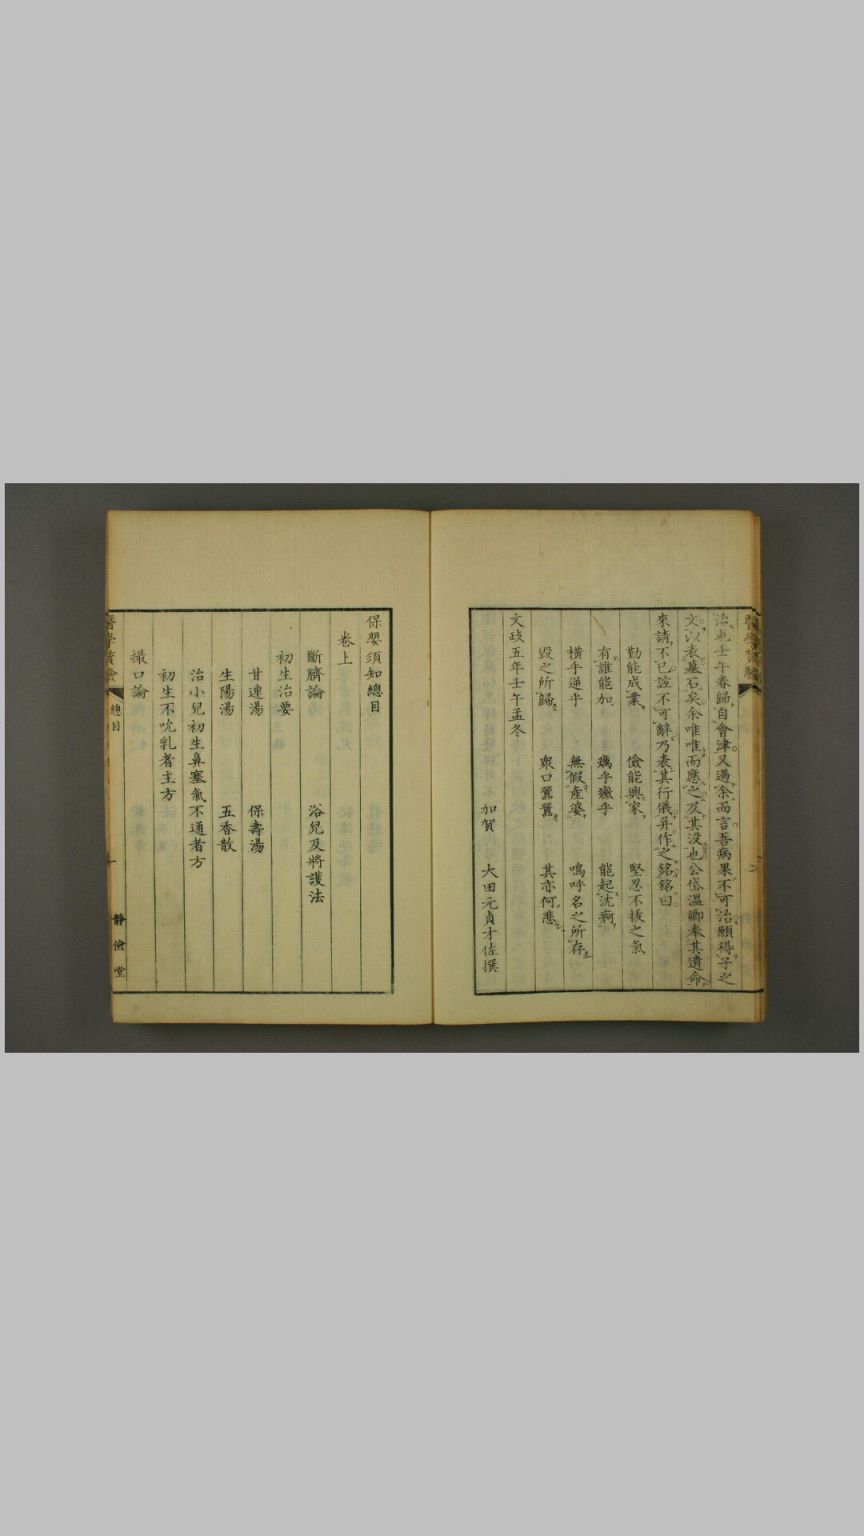 治也壬午春歸自會津又過余而言吾病果不可治願得子之
文以表墓石矣余唯唯而應之及其沒也公岱溫卿奉其遺命
來請不已誼不可辭乃表其行儀并作之銘銘曰
勤能成業 儉能興家 堅忍不拔之氣
有誰能加 癘乎癥乎 能起沈痾
橫乎逆乎 無假產婆 嗚呼名之所存
毀之所歸 衆口囂囂 其亦何悲
文政五年壬午孟冬
加賀 大田元貞才佐撰
保嬰須知總目
卷上
斷臍論 浴兒及將護法
初生治要
甘連湯 保壽湯
生陽湯 五香散
治小兒初生鼻塞氣不通者方
初生不吮乳者主方
撮口論
總目
一
靜儉堂